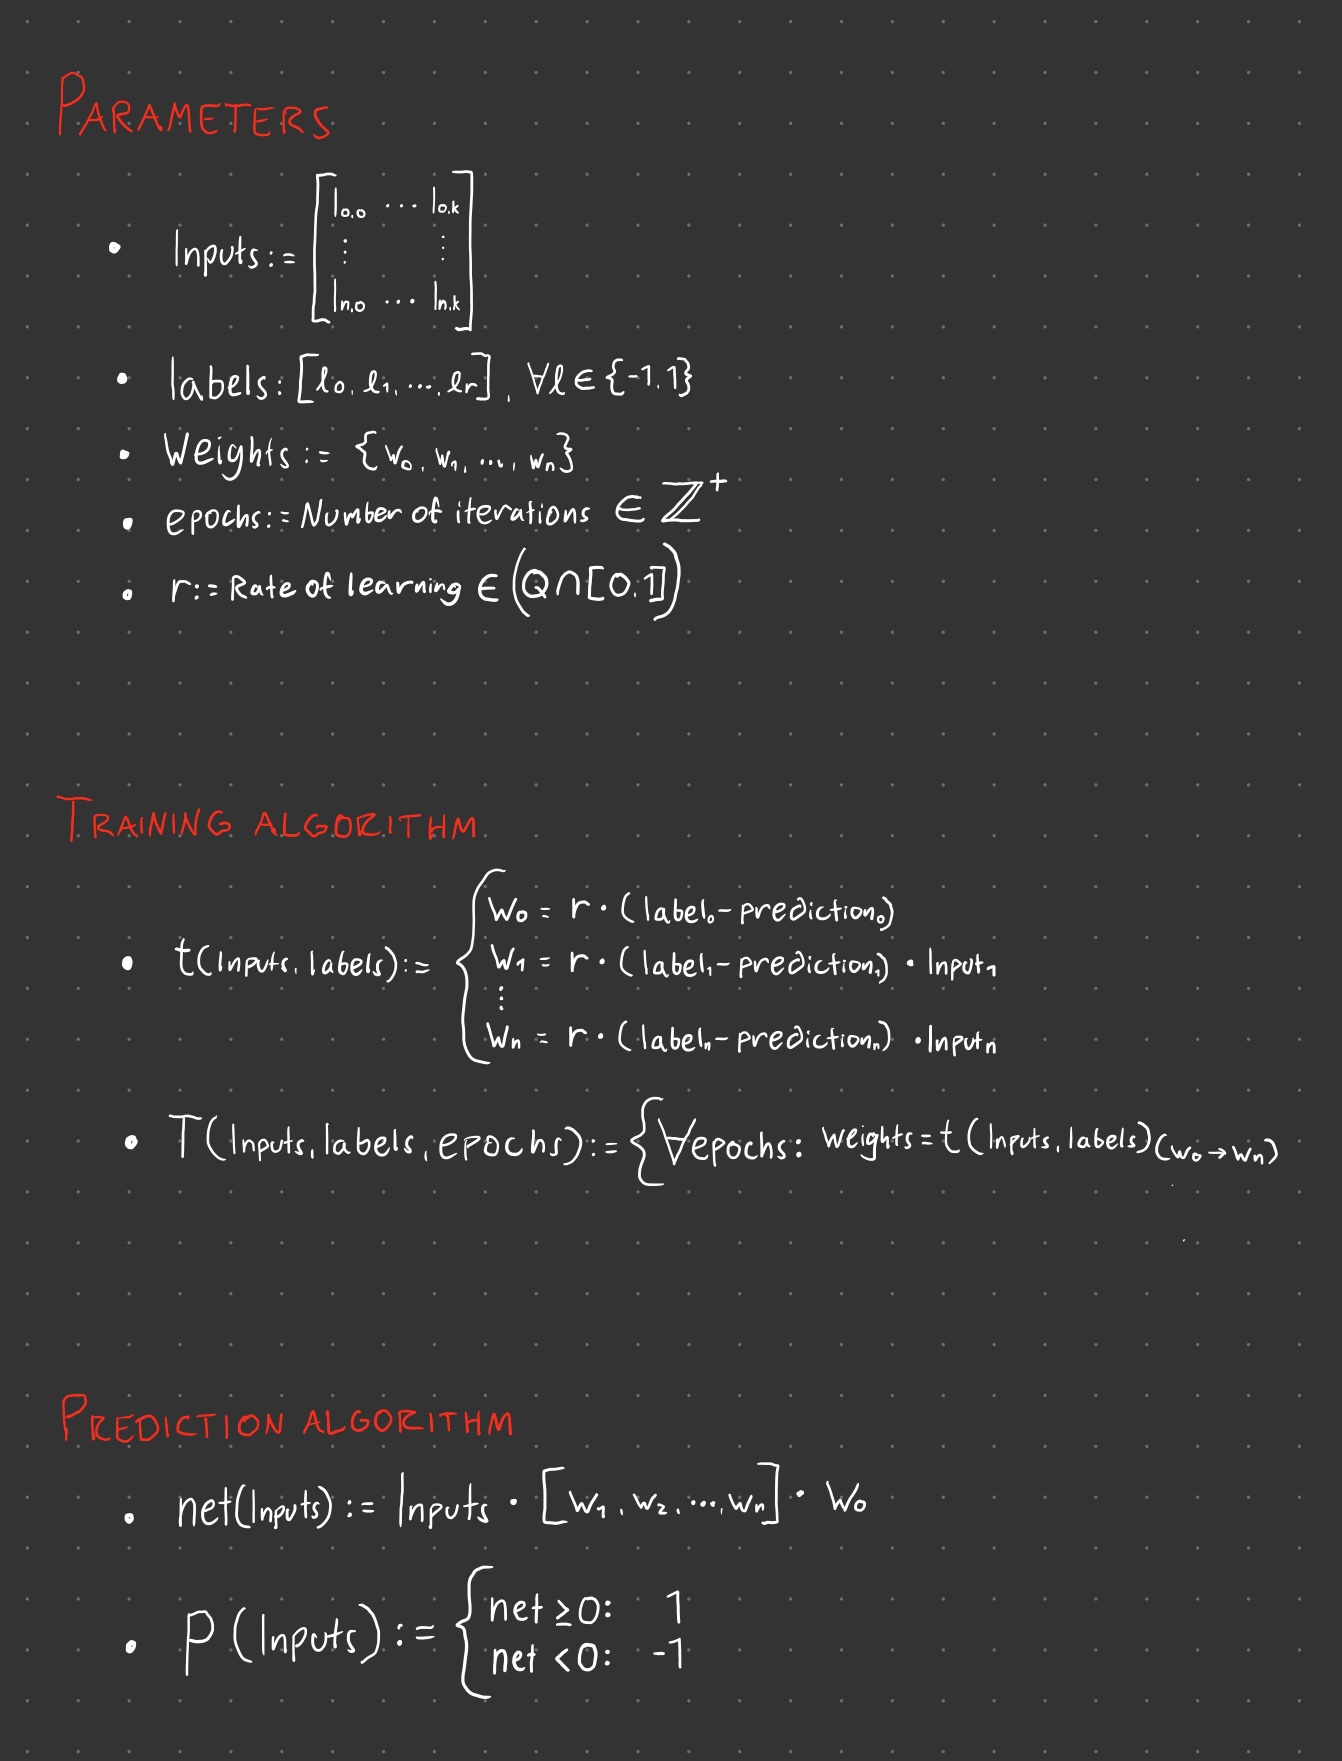 PARAMETERS
• Inputs := [I₀.₀ ⋯ I₀.ₖ
⋮ ⋮
Iₙ.₀ ⋯ Iₙ.ₖ]
• labels: [ℓ₀, ℓ₁, ..., ℓr], ∀ℓ ∈ {-1.1}
• Weights := {w₀, w₁, ..., wₙ}
• epochs := Number of iterations ∈ ℤ⁺
• r := Rate of learning ∈ (Q∩[0.1])
TRAINING ALGORITHM
• t(Inputs, labels) := { w₀ = r · (label₀ - prediction₀)
w₁ = r · (label₁ - prediction₁) · Input₁
⋮
wₙ = r · (labelₙ - predictionₙ) · Inputₙ
• T(Inputs, labels, epochs) := {∀epochs: weights = t(Inputs, labels)(w₀→wₙ)
PREDICTION ALGORITHM
• net(Inputs) := Inputs · [w₁, w₂, ..., wₙ] · w₀
• P(Inputs) := { net ≥0: 1
net <0: -1